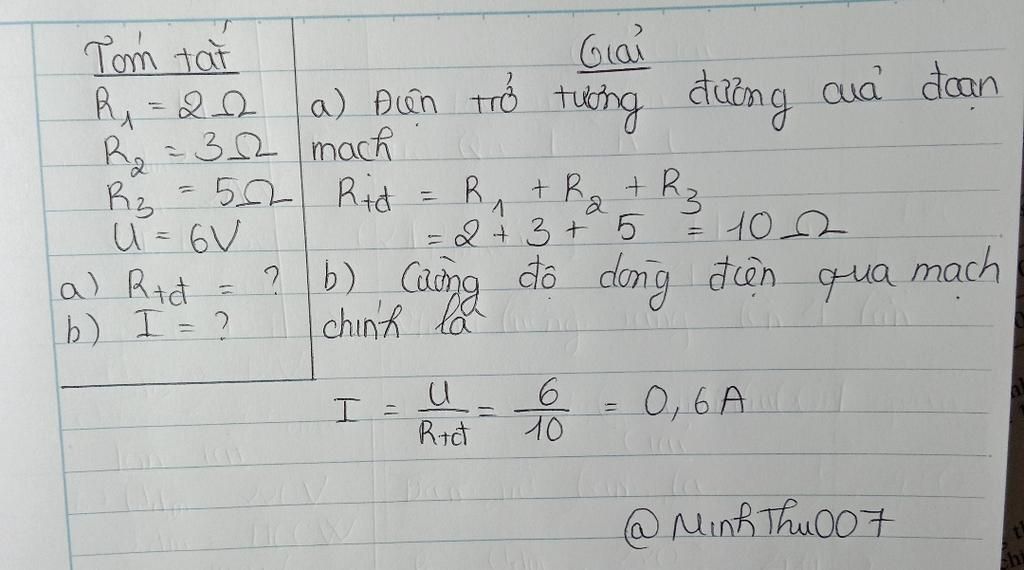 Tóm tắt
R₁ = 2Ω
R₂ = 3Ω
R₃ = 5Ω
U = 6V
a) Rtđ = ?
b) I = ?
Giải
a) Điện trở tương đương của đoạn
mạch
Rtđ = R₁ + R₂ + R₃
= 2 + 3 + 5 = 10 Ω
b) Cường độ dòng điện qua mạch
chính là
I = U/Rtđ = 6/10 = 0,6A
@MinhThu007